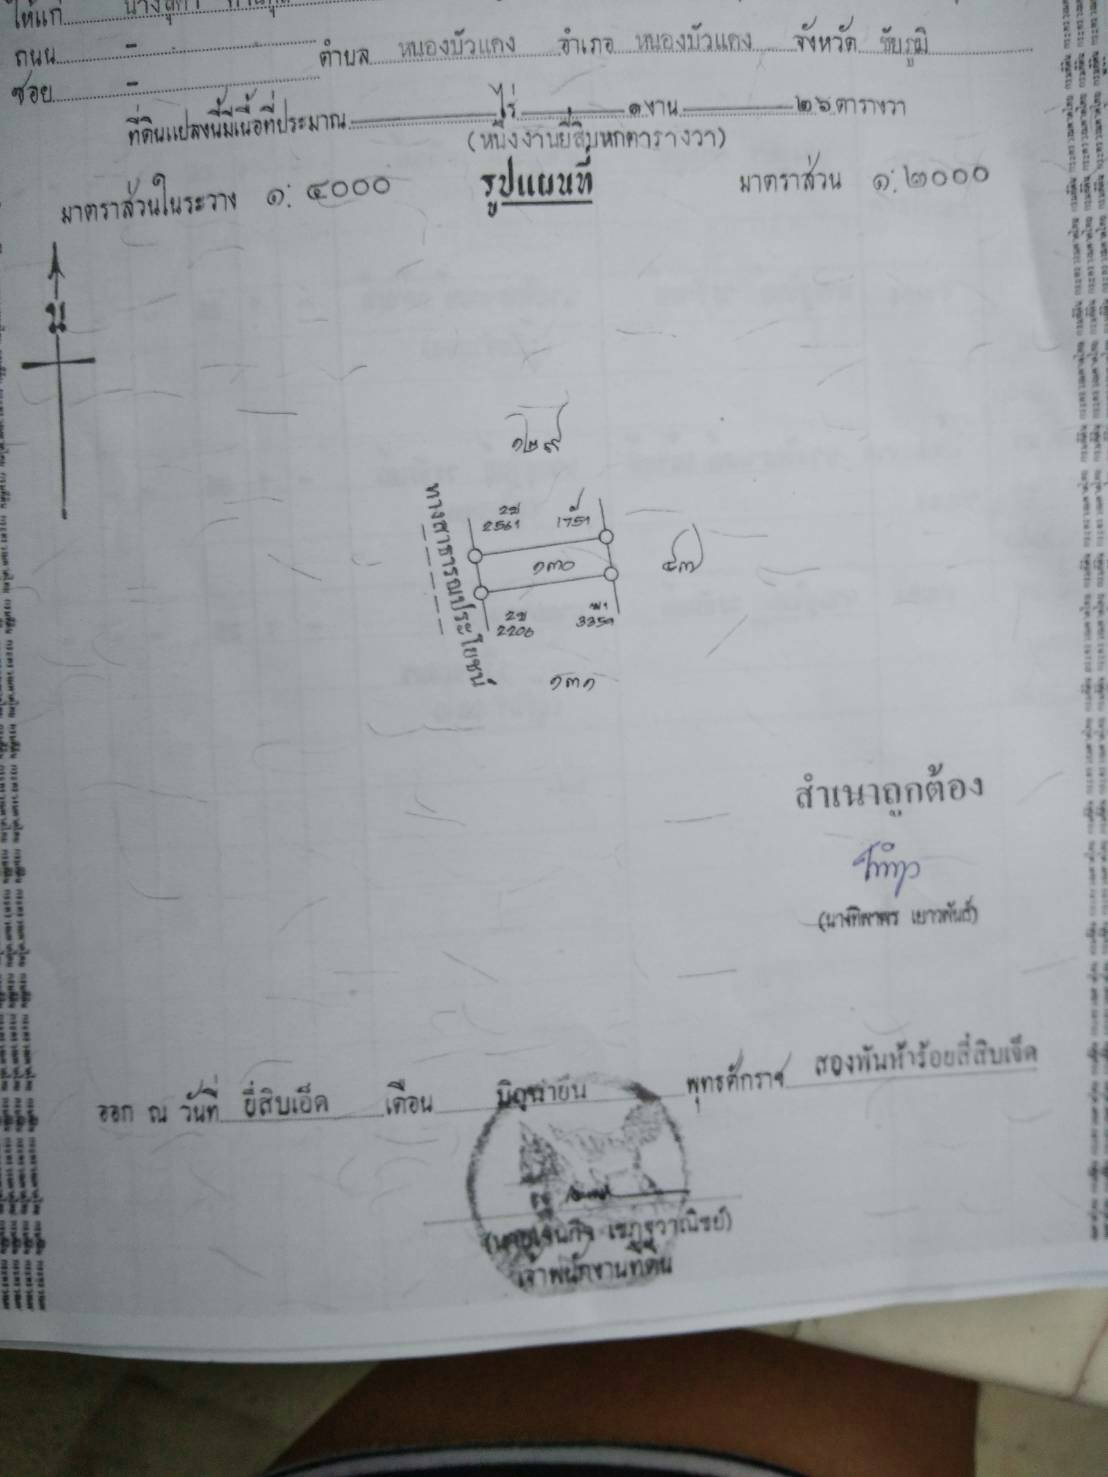 ให้แก่ นางสุดา
ถนน - ตำบล หนองบัวแดง อำเภอ หนองบัวแดง จังหวัด ชัยภูมิ
ซอย -
ที่ดินแปลงนี้มีเนื้อที่ประมาณ ไร่ ๑ งาน ๒๖ ตารางวา
(หนึ่งงานยี่สิบหกตารางวา)
มาตราส่วนในระวาง ๑: ๔๐๐๐ รูปแผนที่ มาตราส่วน ๑: ๒๐๐๐
น
๑๒๙
ทางสาธารณประโยชน์
2ช 2561
1ว51
๑๓๐
๔๗
2ช 2206
พ1 3359
๑๓๑
สำเนาถูกต้อง
(นางทิพาพร เยาวพันธ์)
ออก ณ วันที่ ยี่สิบเอ็ด เดือน มิถุนายน พุทธศักราช สองพันห้าร้อยสี่สิบเจ็ด
เชฎฐวาณิชย์)
เจ้าพนักงานที่ดิน